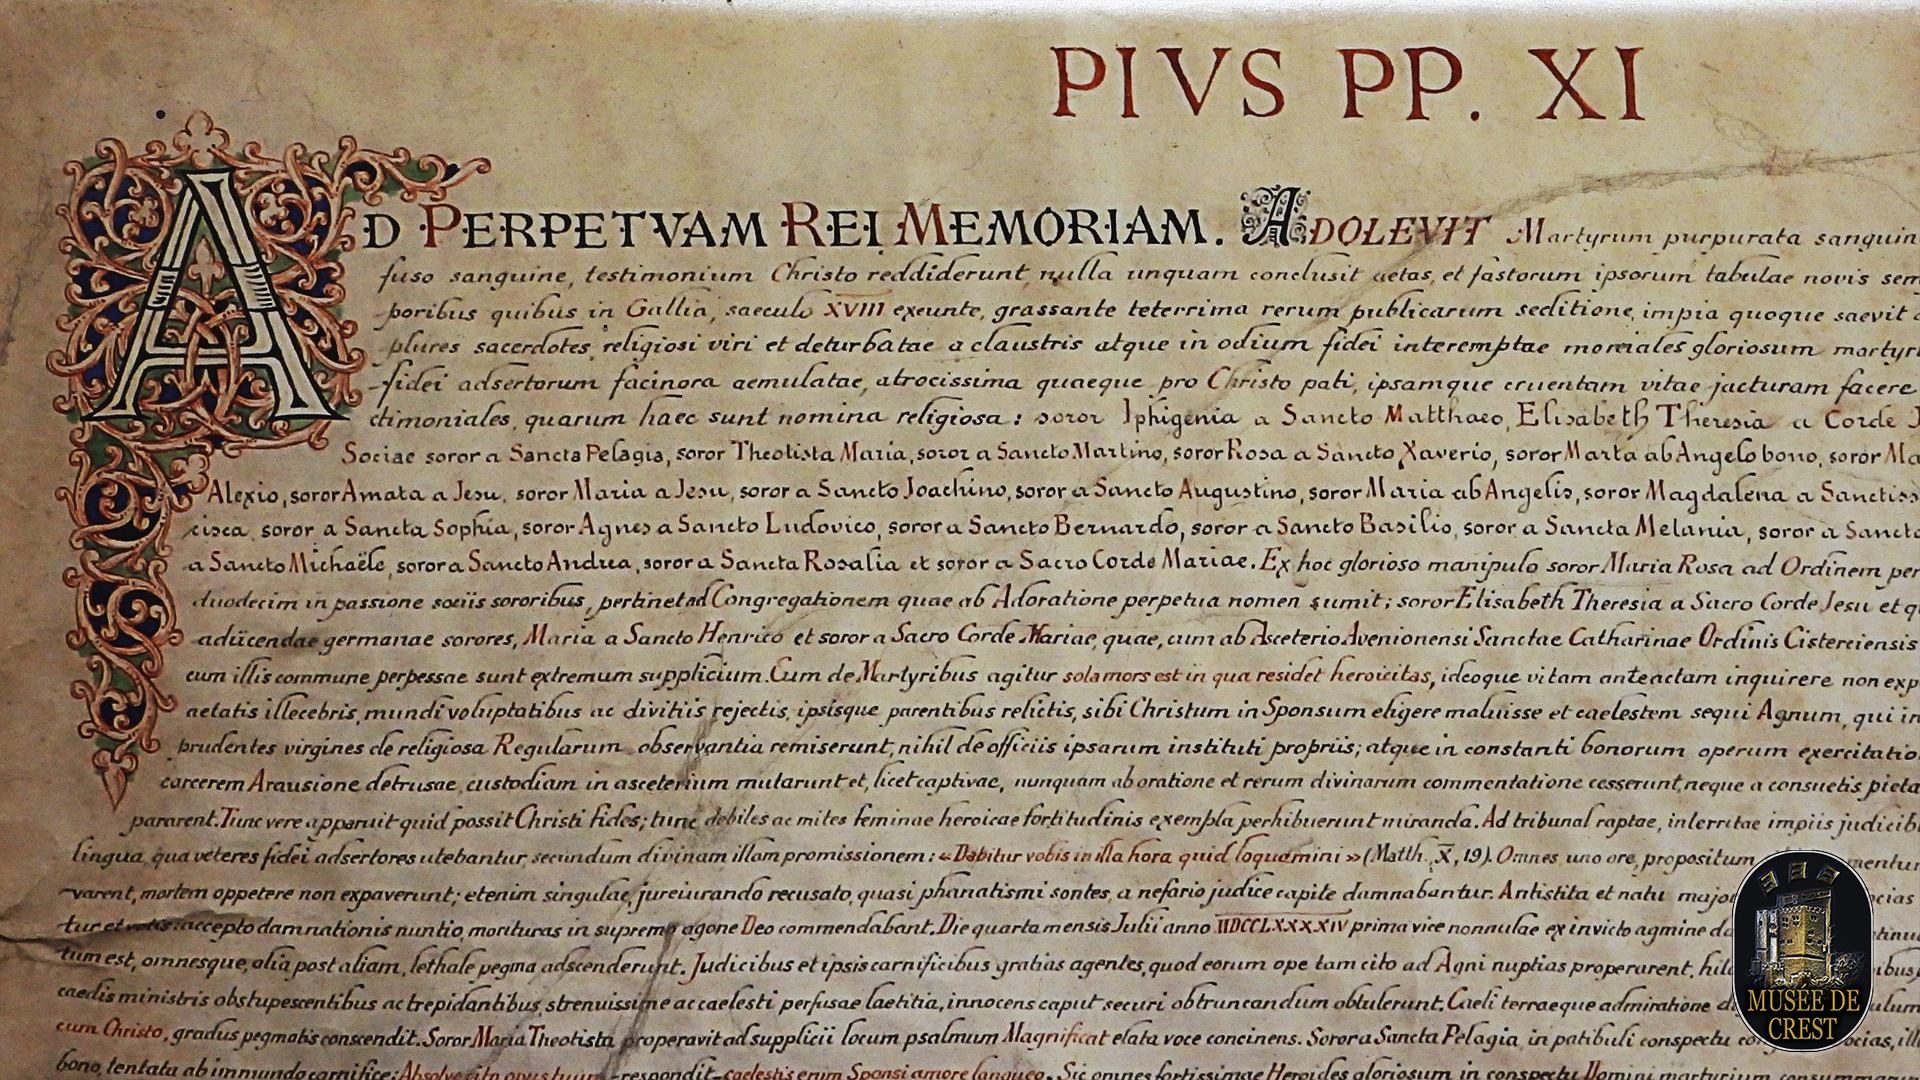 PIVS PP. XI
AD PERPETVAM REI MEMORIAM. ADOLEVIT Martyrum purpurata sanguin
fuso sanguine, testimonium Christo reddiderunt, nulla unquam conclusit aetas, et fastorum ipsorum tabulae novis sem
poribus quibus in Gallia, saeculo XVIII exeunte, grassante teterrima rerum publicarum seditione, impia quoque saevit
plures sacerdotes, religiosi viri et deturbatae a claustris atque in odium fidei interemptae moniales gloriosum martyri
fidei adsertorum facinora aemulatae, atrocissima quaeque pro Christo pati, ipsamque cruentam vitae jacturam facere
ctimoniales, quarum haec sunt nomina religiosa: soror Iphigenia a Sancto Matthaeo, Elisabeth Theresia a Corde J
Sociae soror a Sancta Pelagia, soror Theotista Maria, soror a Sancto Martino, soror Rosa a Sancto Xaverio, soror Marta ab Angelo bono, soror Ma
Alexio, soror Amata a Jesu, soror Maria a Jesu, soror a Sancto Joachino, soror a Sancto Augustino, soror Maria ab Angelis, soror Magdalena a Sanctiss
cisca, soror a Sancta Sophia, soror Agnes a Sancto Ludovico, soror a Sancto Bernardo, soror a Sancto Basilio, soror a Sancta Melania, soror a Sancto
a Sancto Michaële, soror a Sancto Andrea, soror a Sancta Rosalia et soror a Sacro Corde Mariae. Ex hoc glorioso manipulo soror Maria Rosa ad Ordinem per
duodecim in passione sociis sororibus, pertinet ad Congregationem quae ab Adoratione perpetua nomen sumit; soror Elisabeth Theresia a Sacro Corde Jesu et q
adiicendae germanae sorores, Maria a Sancto Henrico et soror a Sacro Corde Mariae, quae, cum ab Asceterio Avenionensi Sanctae Catharinae Ordinis Cisterciensis
cum illis commune perpessae sunt extremum supplicium. Cum de Martyribus agitur sola mors est in qua residet heroicitas, ideoque vitam anteactam inquirere non exp
aetatis illecebris, mundi voluptatibus ac divitiis rejectis, ipsisque parentibus relictis, sibi Christum in Sponsum eligere maluisse et caelestem sequi Agnum, qui in
prudentes virgines de religiosa Regularum observantia remiserunt, nihil de officiis ipsarum instituti propriis; atque in constanti bonorum operum exercitatio
carcerem Arausione detrusae, custodiam in asceterium mutarunt et, licet captivae, nunquam ab oratione et rerum divinarum commentatione cesserunt, neque a consuetis pieta
pararent. Tunc vere apparuit quid possit Christi fides; tunc debiles ac mites feminae heroicae fortitudinis exempla perhibuerunt miranda. Ad tribunal raptae, interritae impiis judicib
lingua, qua veteres fidei adsertores utebantur, secundum divinam illam promissionem: «Dabitur vobis in illa hora quid loquamini» (Matth. X, 19). Omnes, uno ore, propositum
varent, mortem oppetere non expaverunt; etenim singulae, jureiurando recusato, quasi phanatismi sontes, a nefario judice capite damnabantur. Antistita et natu major
tur et votis: accepto damnationis nuntio, morituras in supremo agone Deo commendabant. Die quarta mensis Julii anno MDCCLXXXXIV prima vice nonnulae ex invicto agmine
tum est, omnesque, alia post aliam, lethale pegma adscenderunt. Judicibus et ipsis carnificibus gratias agentes, quod eorum ope tam cito ad Agni nuptias properarent,
caedis ministris obstupescentibus ac trepidantibus, strenuissime ac caelesti perfusae laetitia, innocens caput securi obtruncandum obtulerunt. Caeli terraeque admiratione
cum Christo, gradus pegmatis conscendit. Soror Maria Theotista properavit ad supplicii locum psalmum Magnificat elata voce concinens. Soror a Sancta Pelagia, in patibuli conspectu
bono, tentata ab immundo carnifice: Absolve cito opus tuum respondit caelestis enim Sponsi amore langueo. Sic omnes fortissimae Heroides gloriosum in conspectu Domini martyrium consummarunt
MUSÉE DE
CREST